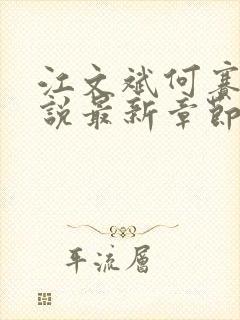 江文斌何賽
說最新章節
平流層